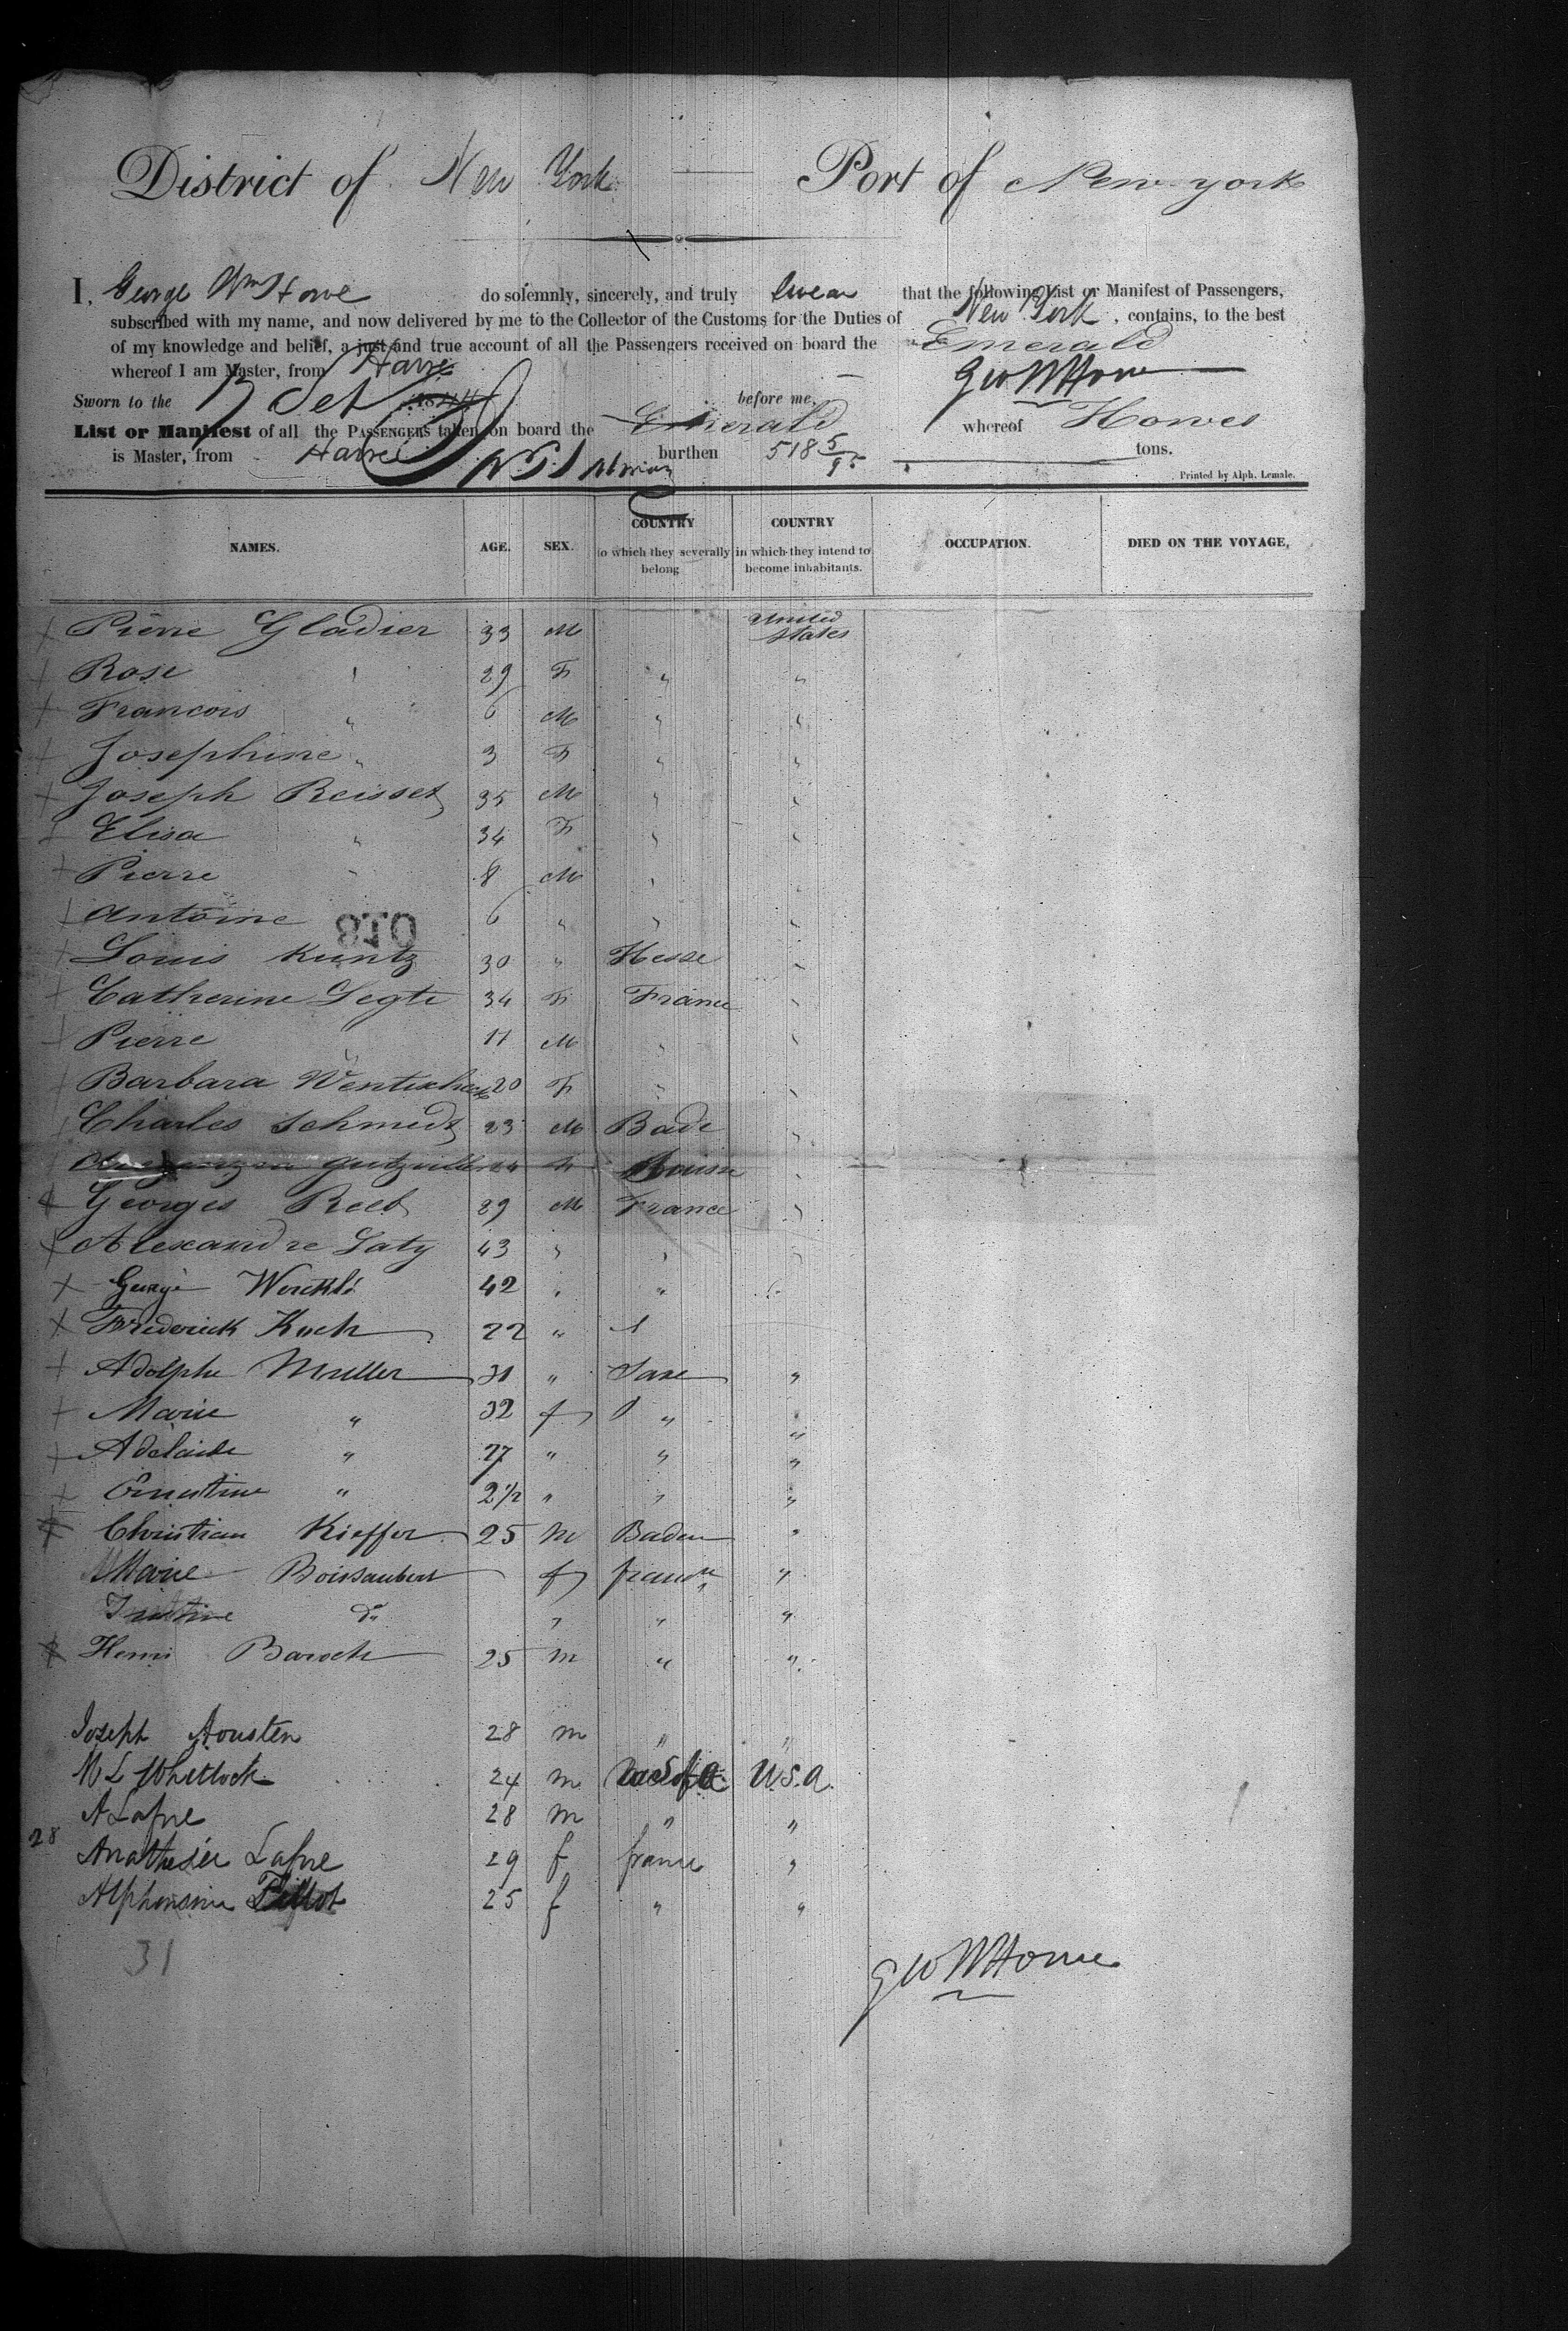 District of New York Port of New-york
I, George Wm Howe do solemnly, sincerely, and truly swear that the following List or Manifest of Passengers,
subscribed with my name, and now delivered by me to the Collector of the Customs for the Duties of New York, contains, to the best
of my knowledge and belief, a just and true account of all the Passengers received on board the Emerald
whereof I am Master, from Havre Geo W Howe
Sworn to the 184 before me,
List or Manifest of all the PASSENGERS taken on board the Emerald whereof Howes
is Master, from Havre burthen 518 5/95 tons.
Printed by Alph. Lemale.
NAMES. AGE. SEX. COUNTRY to which they severally belong COUNTRY in which they intend to become inhabitants. OCCUPATION. DIED ON THE VOYAGE,
Pierre Gladier 33 M United States
Rose " 29 F " "
Francois " 6 M " "
Josephine " 3 F " "
Joseph Reisset 35 M " "
Elisa " 34 F " "
Pierre " 8 M " "
Antoine 6 " " "
010
Louis Kuntz 30 " Hesse "
Catherine Legte 34 F France "
Pierre " 11 M " "
Barbara 20 F " "
Charles Schmidt 23 M Bade "
F "
Georges Reeb 29 M France "
Alexandre Laty 43 " " "
George 42 " " "
Frederick Koch 22 "
Adolphe Muller 31 " Saxe "
Marie " 32 f " "
Adelaide " 27 " " "
Ernestine " 2 1/2 " " "
Christian Kieffer 25 m Baden "
Marie Boissaubert f france "
Justine do " " "
Henri Baroch 25 m " "
Joseph Aousten 28 m " "
M L Whitlock 24 m U.S.a.
A Lafne 28 m " "
28
Lafne 29 f france "
Alphonsine 25 f " "
31
Geo W Howe